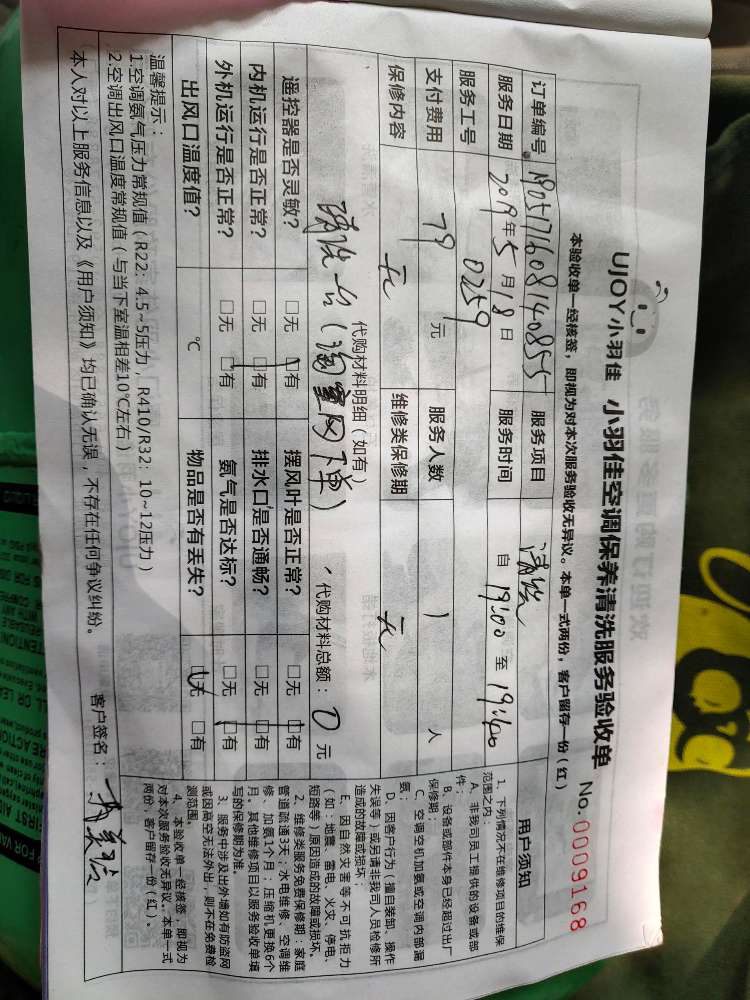 UJOY小羽佳 小羽佳空调保养清洗服务验收单
No.0009168
本验收单一经核签，即视为对本次服务验收无异议。本单一式两份，客户留存一份（红）
订单编号 190571608140855 服务项目 清洗
服务日期 2019年5月18日 服务时间 自 19:00 至
服务工号 0259
支付费用 79 元 服务人数 1 人
保修内容 无 维修类保修期 无
代购材料明细（如有）
清洗一台（淘宝网下单） 代购材料总额：0元
遥控器是否灵敏？ □无 □有 摆风叶是否正常？ □无 □有
内机运行是否正常？ □无 □有 排水口是否通畅？ □无 □有
外机运行是否正常？ □无 □有 氨气是否达标？ □无 □有
出风口温度值？ ℃ 物品是否有丢失？ □无 □有
温馨提示：
1.空调氨气压力常规值（R22：4.5~5压力，R410/R32：10~12压力）
2.空调出风口温度常规值（与当下室温相差10℃左右）
本人对以上服务信息以及《用户须知》均已确认无误，不存在任何争议纠纷。 客户签名：
用户须知
1、下列情况不在维修项目的维保
范围之内：
A、非我司员工提供的设备或部
件；
B、设备或部件本身已经超过出厂
保修期；
C、空调空机加氨或空调内部漏
氨；
D、因客户行为（擅自装卸、操作
失误等）或另请非我司人员检修所
造成的故障或损坏；
E、因自然灾害等不可抗拒力
（如：地震、雷电、火灾、停电、
短路等）原因造成的故障或损坏。
2、维修类服务免费保修期：家庭
管道疏通3天；水电维修、空调维
修、加氨1个月；压缩机更换6个
月。其他维修项目以服务验收单填
写的保修期为准。
3、服务中涉及出外墙如有防盗网
或因高空无法外出，则不在免费检
测范围。
4、本验收单一经核签，即视为
对本次服务验收无异议。本单一式
两份，客户留存一份（红）。